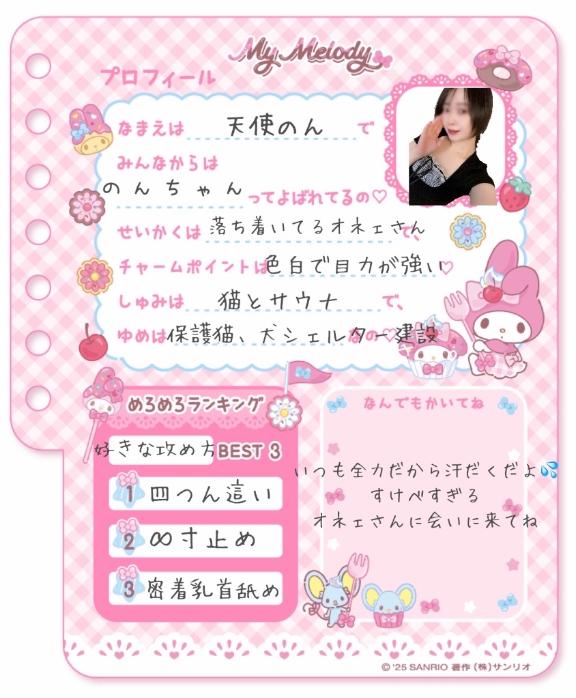 My Melody
プロフィール
なまえは 天使のん で
みんなからは
のんちゃん ってよばれてるの♡
せいかくは 落ち着いてるオネェさん で、
チャームポイントは 色白で目力が強い ♡
しゅみは 猫とサウナ で、
ゆめは 保護猫、犬シェルター建設 なの♡
めろめろランキング
好きな攻め方 BEST 3
1 四つん這い
2 ∞寸止め
3 密着乳首舐め
なんでもかいてね
いつも全力だから汗だくだよ💦
すけべすぎる
オネェさんに会いに来てね
© '25 SANRIO 著作 (株)サンリオ